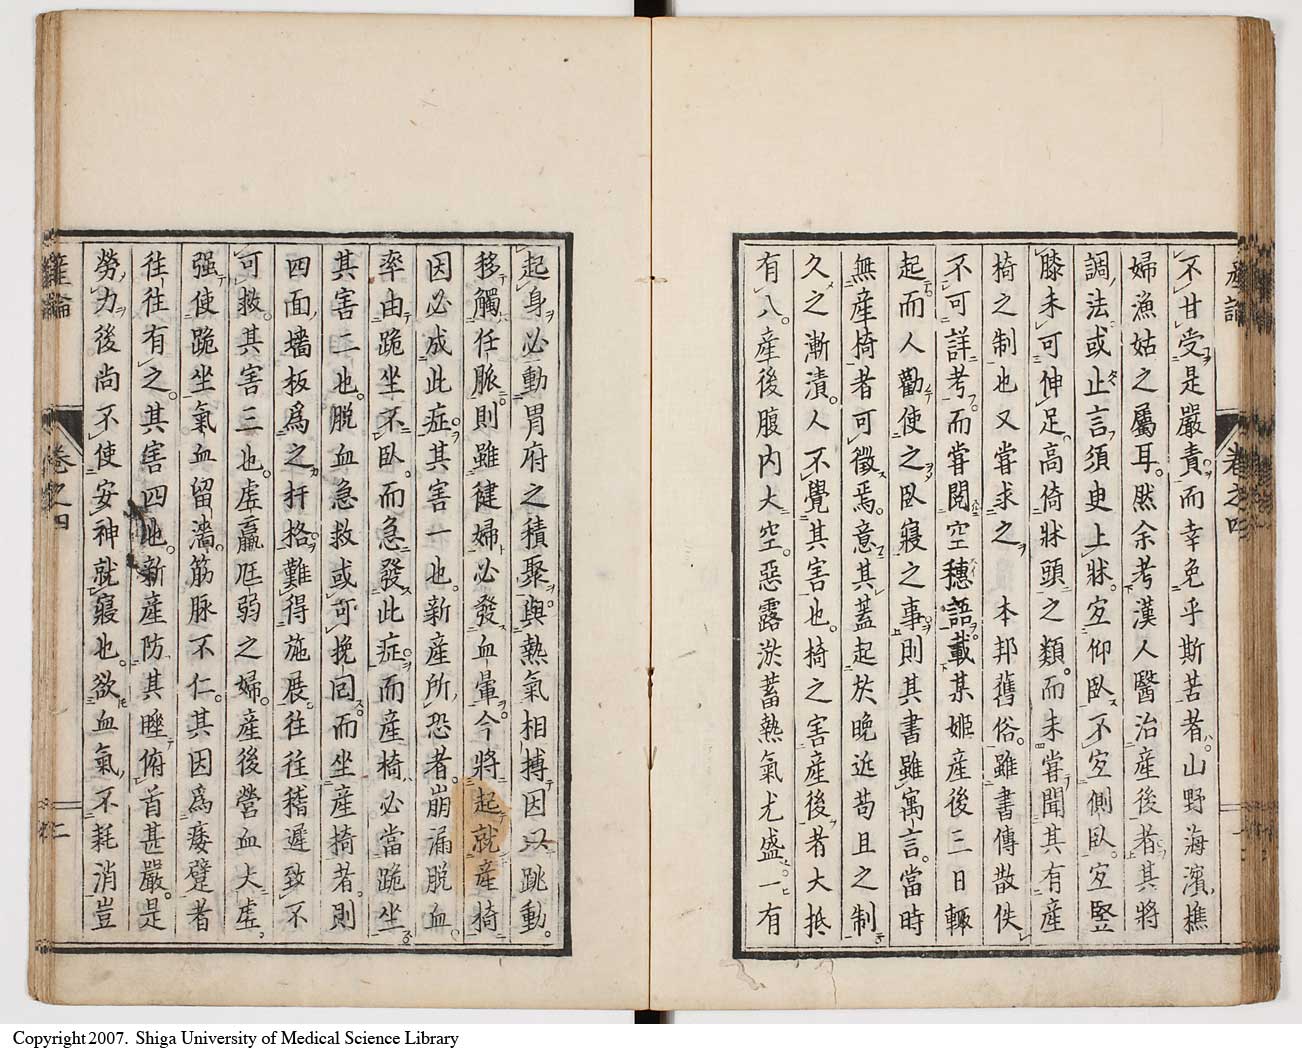 不甘受是嚴責而幸免乎斯苦者山野海濱樵
婦漁姑之屬耳然余考漢人醫治産後者其將
調法或止言須臾上牀宜仰臥不宜側臥宜竪
膝未可伸足高倚牀頭之類而未嘗聞其有産
椅之制也又嘗求之本邦舊俗雖書傳散佚
不可詳考而嘗閱空穗語載某姬産後三日輙
起而人勸使之臥寢之事則其書雖寓言當時
無産椅者可徵焉意其蓋起於晚近苟且之制
久之漸漬人不覺其害也椅之害産後者大抵
有八産後腹内大空惡露淤蓄熱氣尤盛一有
卷之四
起身必動胃府之積聚與熱氣相搏因以跳動
移觸任脈則雖健婦必發血暈今將起就産椅
因必成此症其害一也新産所恐者崩漏脫血
率由跪坐不臥而急發此症而産椅必當跪坐
其害二也脫血急救或可挽回而坐産椅者則
四面墻板爲之扞格難得施展往往稽遲致不
可救其害三也虛羸尫弱之婦産後營血大虛
强使跪坐氣血留濇筋脉不仁其因爲痿躄者
往往有之其害四也新産防其睡俯首甚嚴是
勞力後尚不使安神就寢也欲血氣不耗消豈
産論
卷之四
Copyright 2007. Shiga University of Medical Science Library